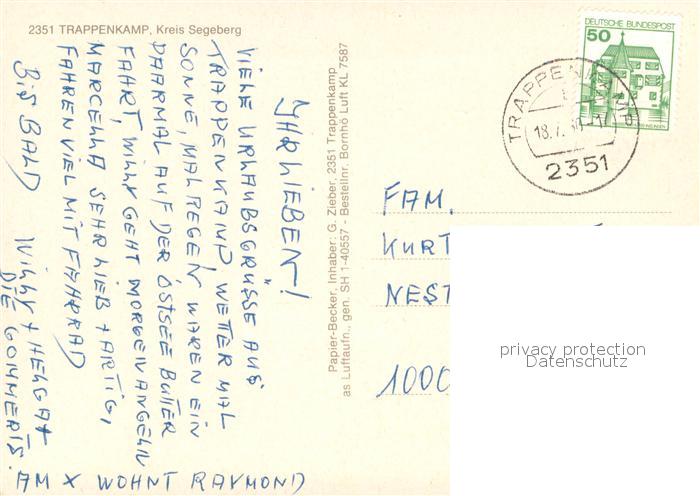 2351 TRAPPENKAMP, Kreis Segeberg
IHR LIEBEN!
VIELE URLAUBSGRÜSSE AUS
TRAPPENKAMP WETTER MAL
SONNE, MAL REGEN, WAREN EIN
PAARMAL AUF DER OSTSEE BUTTER
FAHRT, WILLY GEHT MORGEN ANGELN
MARCELLA SEHR LIEB + ARTIG,
FAHREN VIEL MIT FAHRRAD
BIS BALD
WILLY + HELGA +
DIE GOMMERTS.
AM X WOHNT RAYMOND
Papier-Becker, Inhaber: G. Zieber, 2351 Trappenkamp
as Luftaufn., gen. SH 1-40557 - Bestellnr. Bornhö Luft KL 7587
DEUTSCHE BUNDESPOST
50
TRAPPENKAMP
18.7.
2351
FAM.
KURT
NEST
1000
privacy protection
Datenschutz